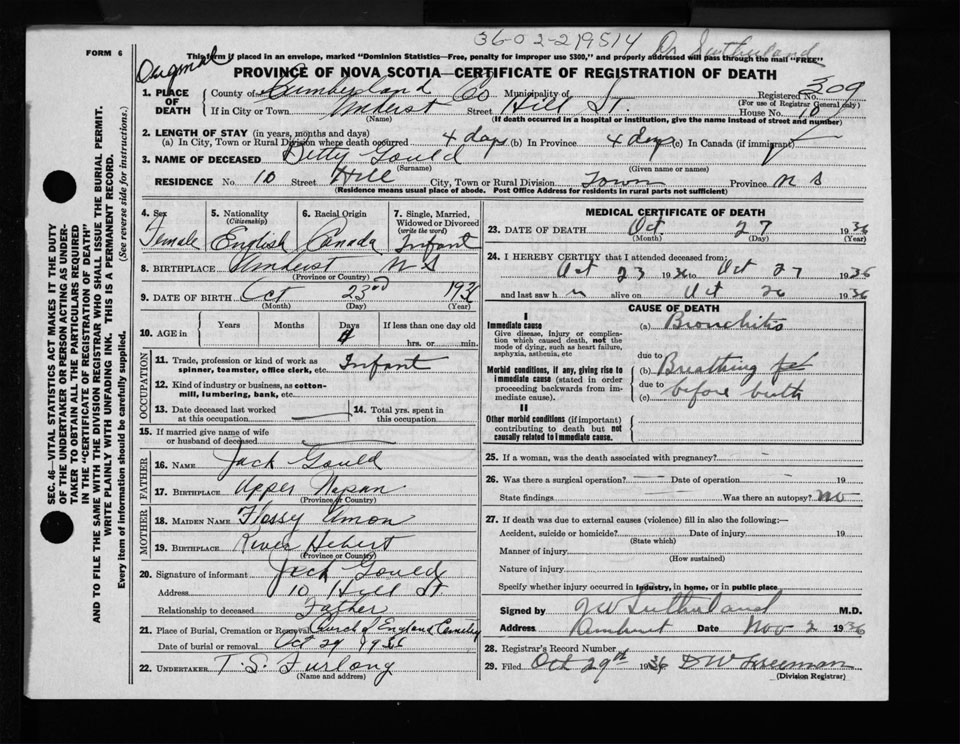 36-02-219514 Dr Sutherland
FORM 6
This form if placed in an envelope, marked "Dominion Statistics—Free, penalty for improper use $300," and properly addressed will pass through the mail "FREE"
Original
PROVINCE OF NOVA SCOTIA—CERTIFICATE OF REGISTRATION OF DEATH
1. PLACE OF DEATH County of Cumberland Co Municipality of Registered No. 309
(For use of Registrar General only)
If in City or Town Amherst Street Hill St. House No. 10
(Name) (If death occurred in a hospital or institution, give the name instead of street and number)
2. LENGTH OF STAY (in years, months and days)
(a) In City, Town or Rural Division where death occurred 4 days (b) In Province 4 days (c) In Canada (if immigrant)
3. NAME OF DECEASED Betty Gould
(Surname) (Given name or names)
RESIDENCE No. 10 Street Hill City, Town or Rural Division Town Province N S
(Residence means usual place of abode. Post Office Address for residents in rural parts not sufficient)
4. Sex Female
5. Nationality (Citizenship) English
6. Racial Origin Canada
7. Single, Married, Widowed or Divorced (write the word) Infant
8. BIRTHPLACE Amherst N S
(Province or Country)
9. DATE OF BIRTH Oct 23rd 1936
(Month) (Day) (Year)
10. AGE in Years Months Days 4 If less than one day old hrs. or min.
OCCUPATION
11. Trade, profession or kind of work as spinner, teamster, office clerk, etc. Infant
12. Kind of industry or business, as cotton-mill, lumbering, bank, etc.
13. Date deceased last worked at this occupation
14. Total yrs. spent in this occupation
15. If married give name of wife or husband of deceased
FATHER
16. NAME Jack Gould
17. BIRTHPLACE Upper Napan
(Province or Country)
MOTHER
18. MAIDEN NAME Flossy Amon
19. BIRTHPLACE River Hebert
(Province or Country)
20. Signature of informant Jack Gould
Address 10 Hill St
Relationship to deceased Father
21. Place of Burial, Cremation or Removal Church of England Cemetery
Date of burial or removal Oct 29 1936
22. UNDERTAKER T. S. Furlong
(Name and address)
MEDICAL CERTIFICATE OF DEATH
23. DATE OF DEATH Oct 27 1936
(Month) (Day) (Year)
24. I HEREBY CERTIFY that I attended deceased from:
Oct 23 1936 to Oct 27 1936
and last saw h alive on Oct 26 1936
CAUSE OF DEATH
I
Immediate cause
Give disease, injury or complication which caused death, not the mode of dying, such as heart failure, asphyxia, asthenia, etc
(a) Bronchitis
due to
Morbid conditions, if any, giving rise to immediate cause (stated in order proceeding backwards from immediate cause).
(b) Breathing
due to
(c) before birth
II
Other morbid conditions (if important) contributing to death but not causally related to immediate cause.
25. If a woman, was the death associated with pregnancy?
26. Was there a surgical operation? Date of operation 19
State findings Was there an autopsy? No
27. If death was due to external causes (violence) fill in also the following:—
Accident, suicide or homicide? Date of injury 19
(State which)
Manner of injury
(How sustained)
Nature of injury
Specify whether injury occurred in industry, in home, or in public place
Signed by J W Sutherland M.D.
Address Amherst Date Nov 2 1936
28. Registrar's Record Number
29. Filed Oct 29th 1936 D W Freeman
(Division Registrar)
SEC. 46—VITAL STATISTICS ACT MAKES IT THE DUTY
OF THE UNDERTAKER OR PERSON ACTING AS UNDER-
TAKER TO OBTAIN ALL THE PARTICULARS REQUIRED
IN THE "CERTIFICATE OF REGISTRATION OF DEATH"
AND TO FILE THE SAME WITH THE DIVISION REGISTRAR WHO SHALL ISSUE THE BURIAL PERMIT.
WRITE PLAINLY WITH UNFADING INK. THIS IS A PERMANENT RECORD.
Every item of information should be carefully supplied. (See reverse side for instructions.)